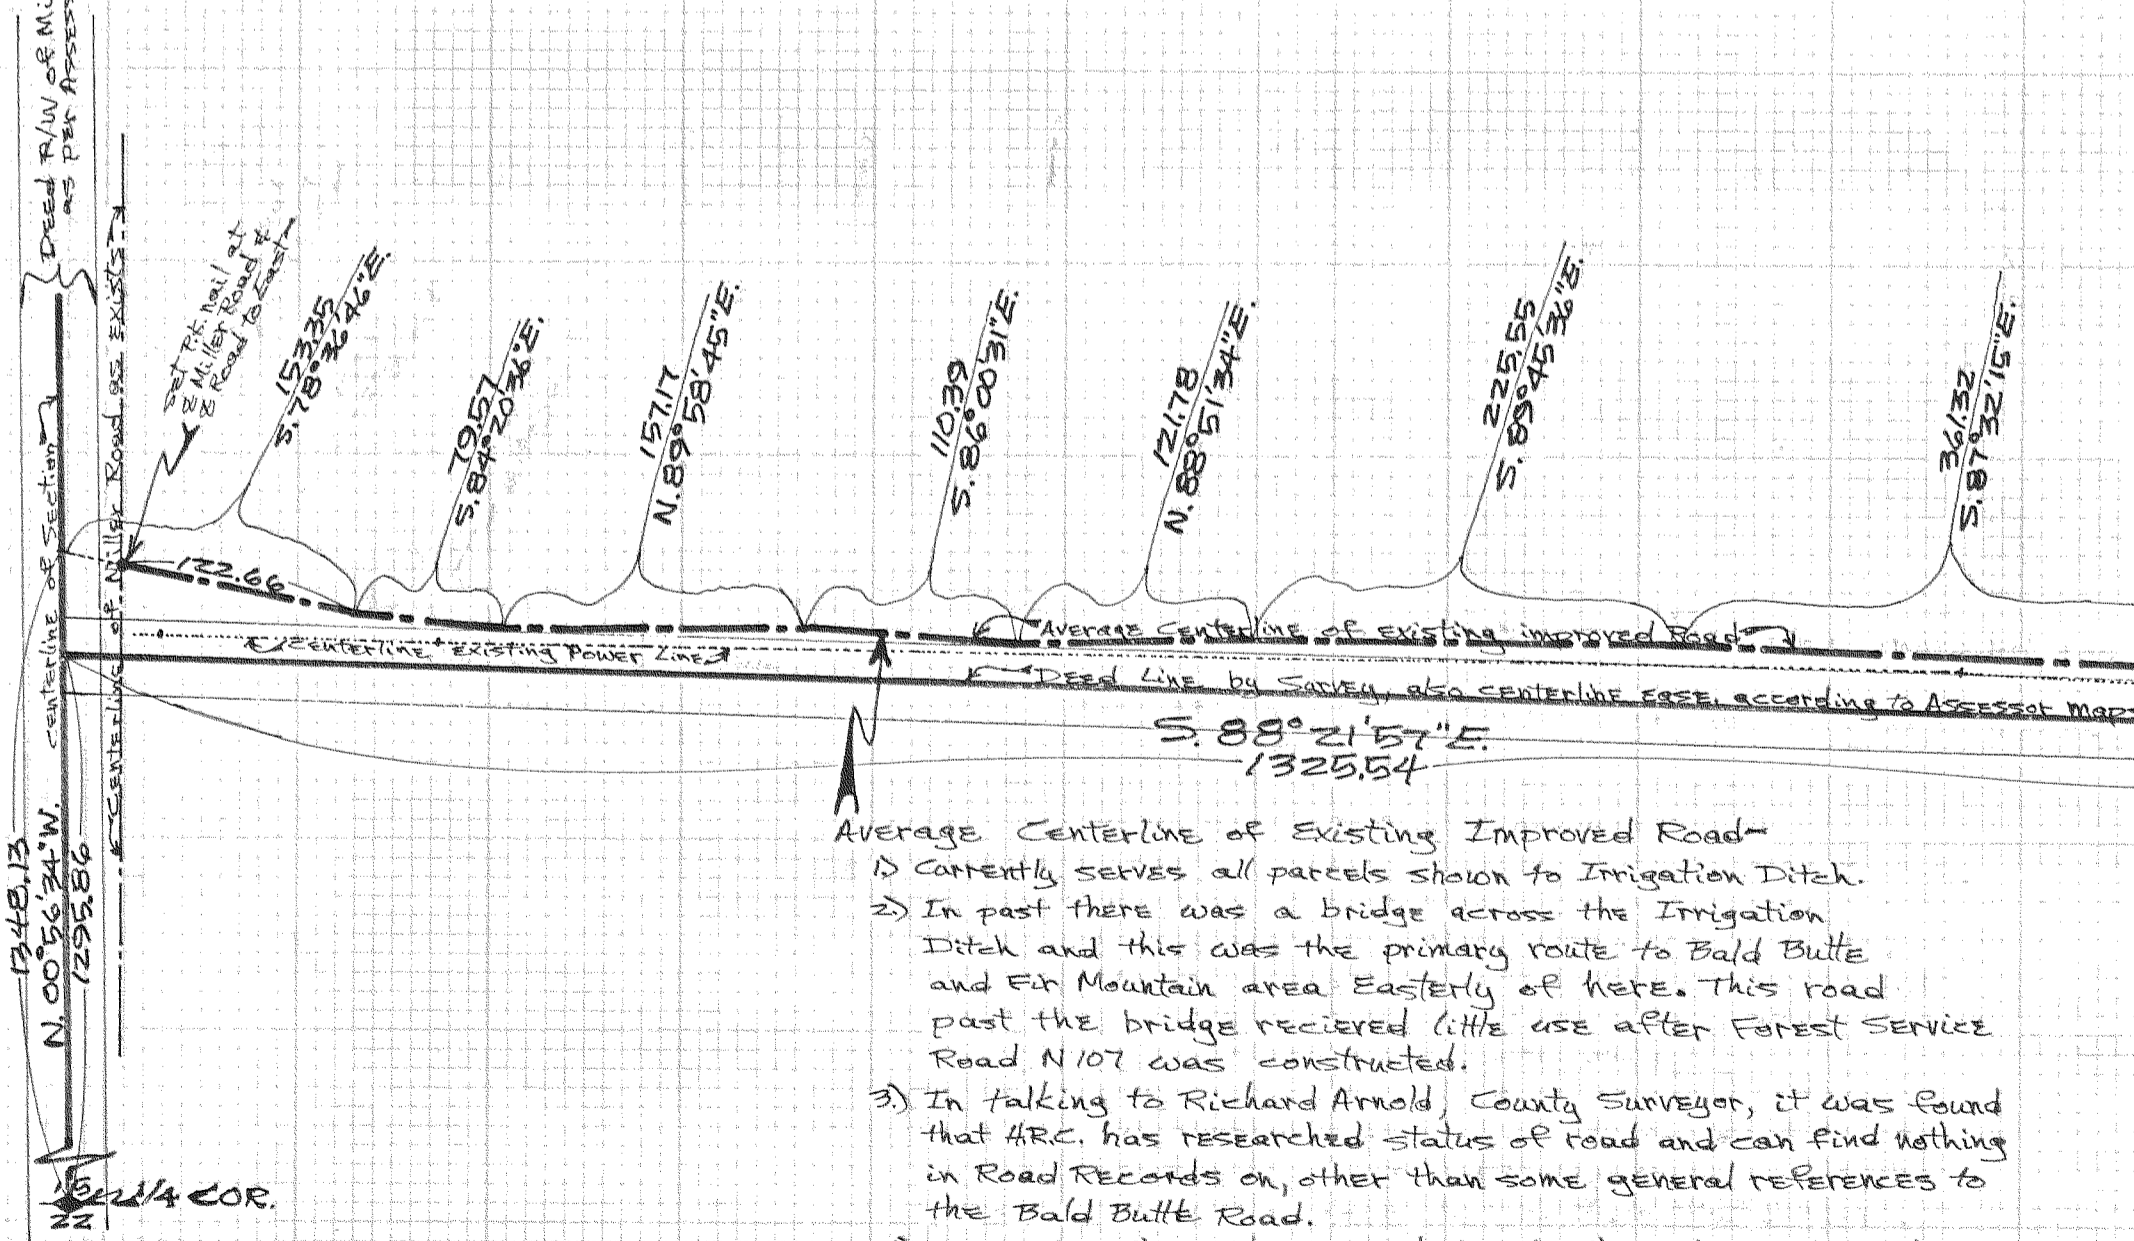 Deed R/W of Mi
as per Assess
Set P.K. nail at
℄ Miller Road &
℄ Road to East
153.35
S.78°36'46"E.
79.57
S.84°20'36"E.
157.17
N.89°58'45"E.
110.39
S.86°00'31"E.
121.78
N.88°51'34"E.
225.55
S.89°45'36"E.
361.32
S.87°32'15"E.
centerline of Section
Centerline of Miller Road as exists
122.66
Average Centerline of existing improved Road
Centerline Existing Power Line
Deed Line by Survey, also centerline ease. according to Assessor maps
S.88°21'57"E.
1325.54
1348.13
N.00°56'34"W.
1295.86
Average Centerline of Existing Improved Road-
1.) Currently serves all parcels shown to Irrigation Ditch.
2.) In past there was a bridge across the Irrigation
Ditch and this was the primary route to Bald Butte
and Fir Mountain area Easterly of here. This road
past the bridge recieved little use after Forest Service
Road N107 was constructed.
3.) In talking to Richard Arnold, County Surveyor, it was found
that H.R.C. has researched status of road and can find nothing
in Road Records on, other than some general references to
the Bald Butte Road.
15
22
1/4 COR.